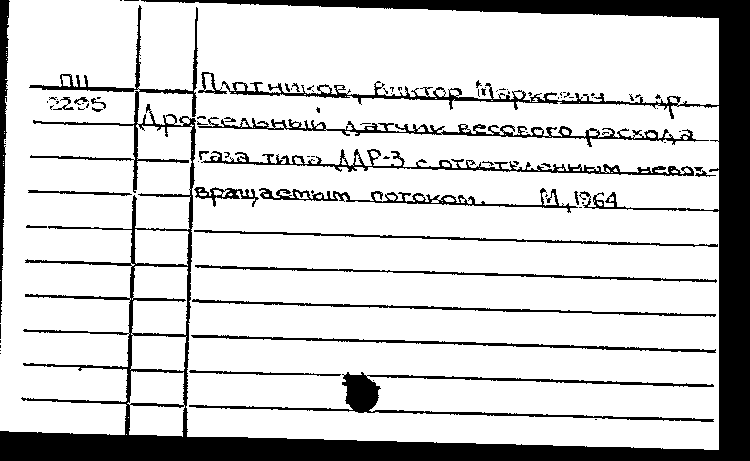 П11 Плотников, Виктор Маркович и др.
2295 Дроссельный датчик весового расхода
газа типа ДДР-3 с ответвленным невоз-
вращаемым потоком. М., 1964